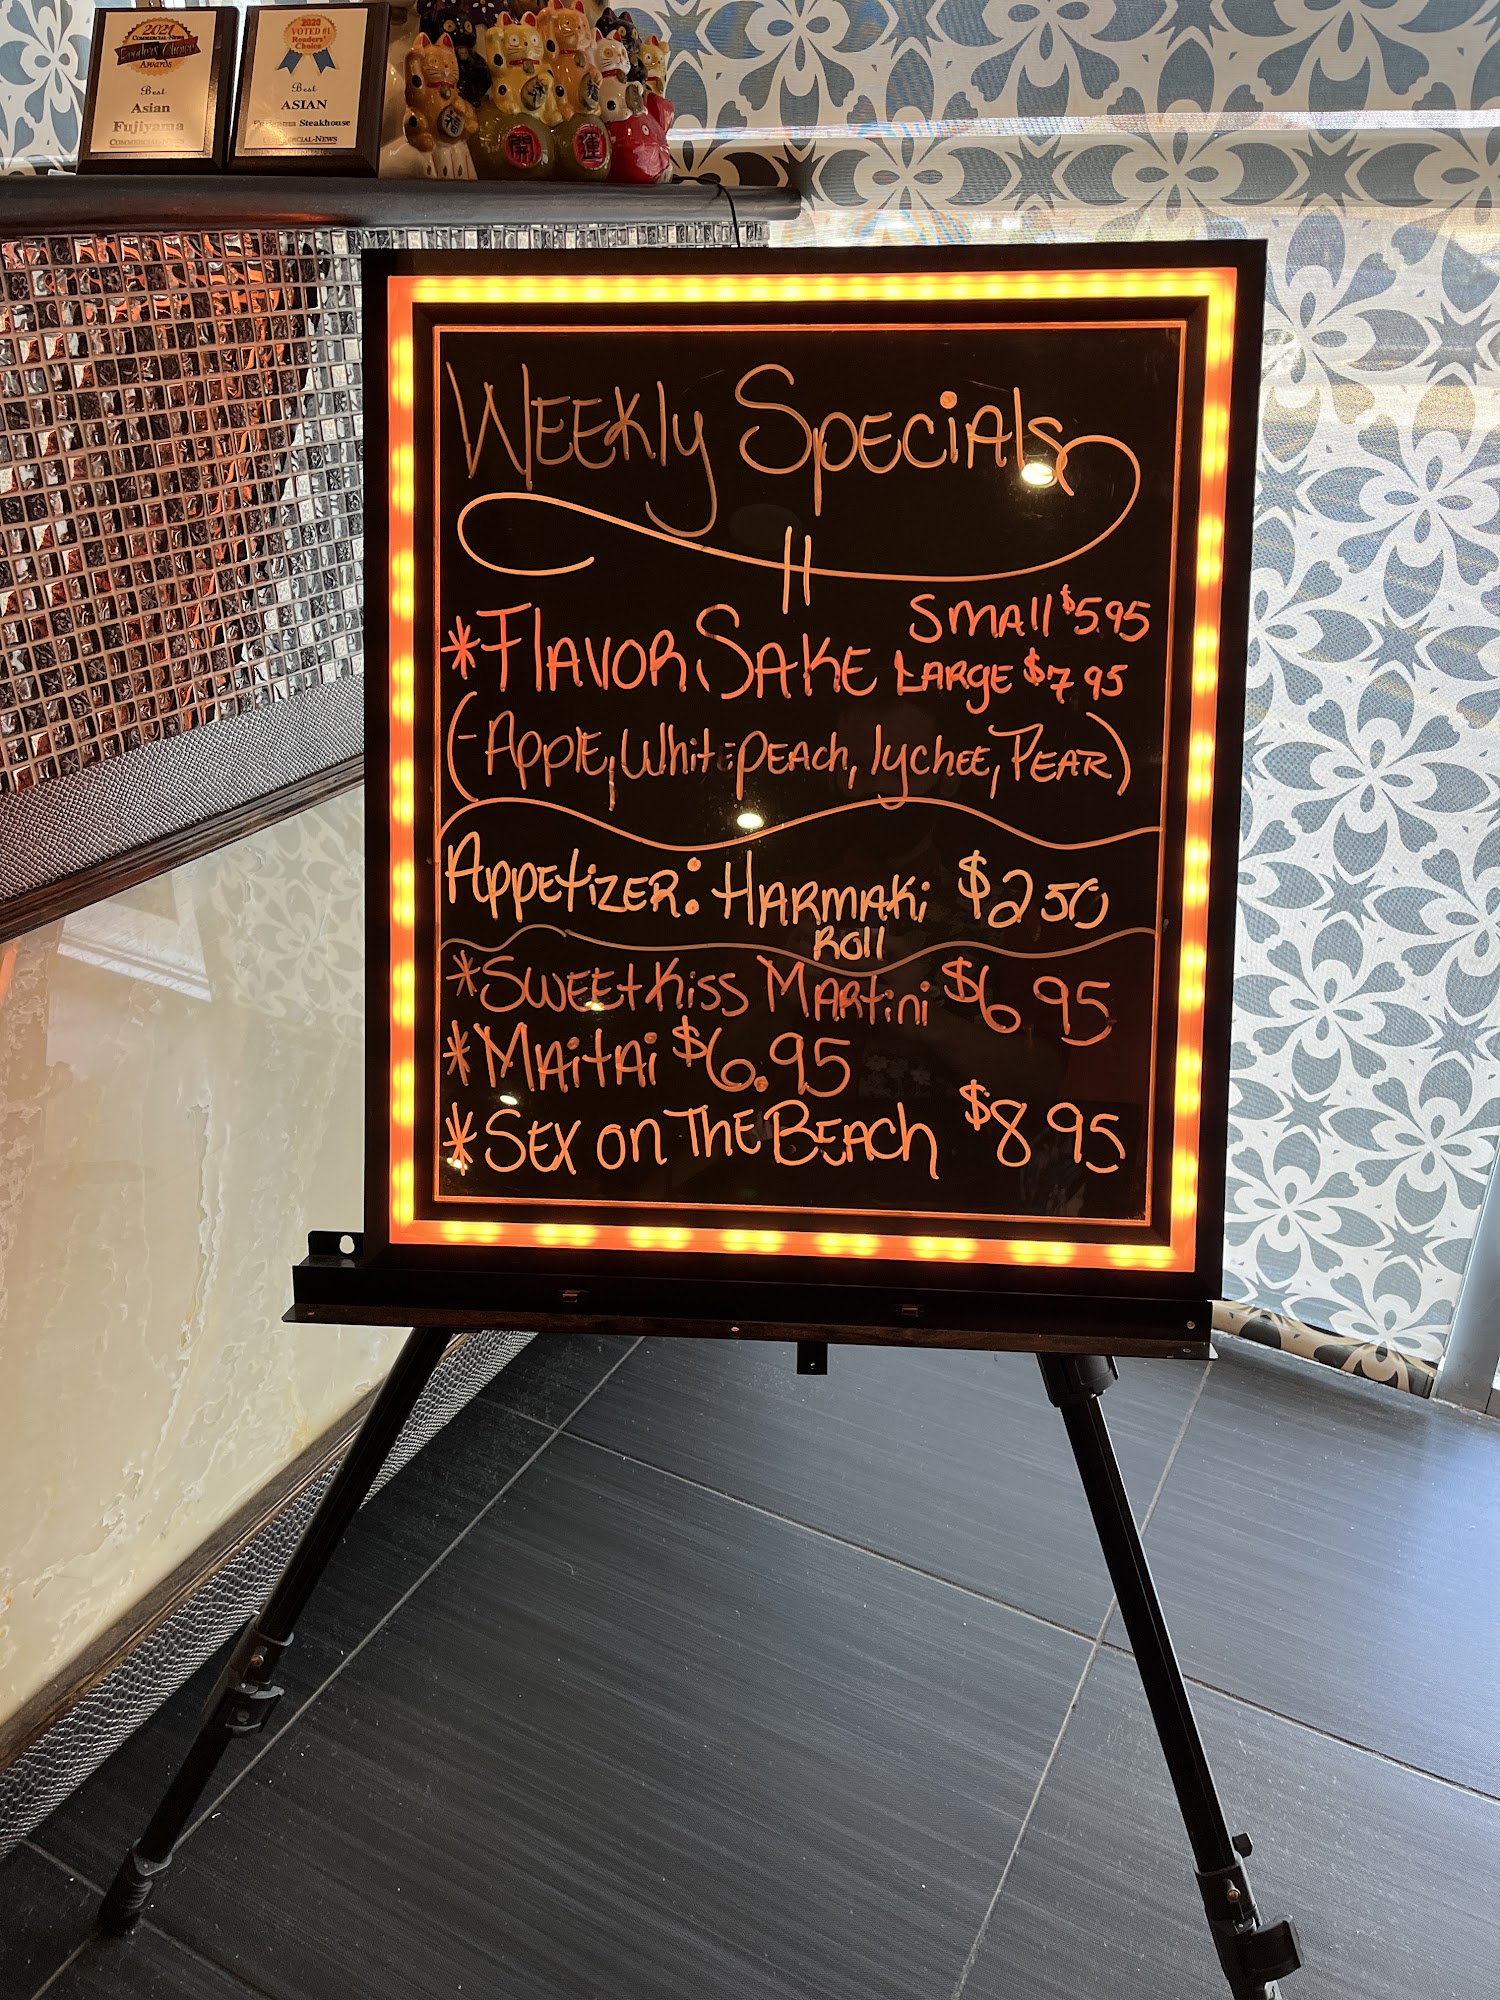 2021
COMMERCIAL-NEWS
Readers' Choice
AWARDS
Best
Asian
Fujiyama
COMMERCIAL-NEWS
2020
VOTED #1
Readers'
Choice
Best
ASIAN
Fujiyama Steakhouse
COMMERCIAL-NEWS
福
開
運
WEEKly SpECiAls
*FlAVOR SAKE SMAll $5.95
LARGE $7.95
(-Apple, White pEAch, lychEE, PEAR)
AppEtizER: HARMAKi $2.50
ROll
*SWEEt Kiss MARtini $6.95
*MAitAi $6.95
*SEX ON THE BEAch $8.95